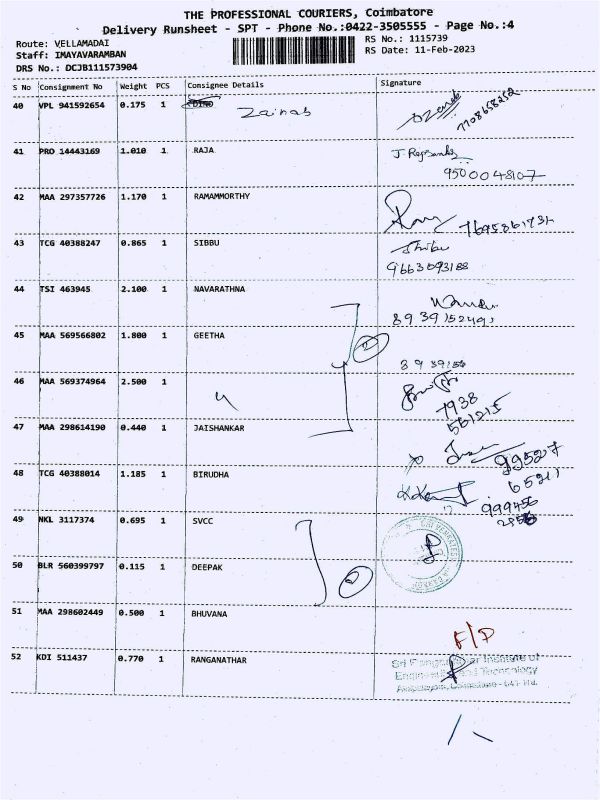 THE PROFESSIONAL COURIERS, Coimbatore
Delivery Runsheet - SPT - Phone No.:0422-3505555 - Page No.:4
Route: VELLAMADAI
RS No.: 1115739
Staff: IMAYAVARAMBAN
RS Date: 11-Feb-2023
DRS No.: DCJB111573904
S No Consignment No Weight PCS Consignee Details Signature
40 VPL 941592654 0.175 1 Zainab
7708658252
41 PRO 14443169 1.010 1 RAJA
9500048107
42 MAA 297357726 1.170 1 RAMAMMORTHY
7695861731
43 TCG 40388247 0.865 1 SIBBU
Shibu
9663093188
44 TSI 463945 2.100 1 NAVARATHNA
8939152491
45 MAA 569566802 1.800 1 GEETHA
2
46 MAA 569374964 2.500 1
7938
561215
47 MAA 298614190 0.440 1 JAISHANKAR
99527
65211
48 TCG 40388014 1.185 1 BIRUDHA
999456
49 NKL 3117374 0.695 1 SVCC
50 BLR 560399797 0.115 1 DEEPAK
2
51 MAA 298602449 0.500 1 BHUVANA
F/D
52 KDI 511437 0.770 1 RANGANATHAR
Institute of
Technology